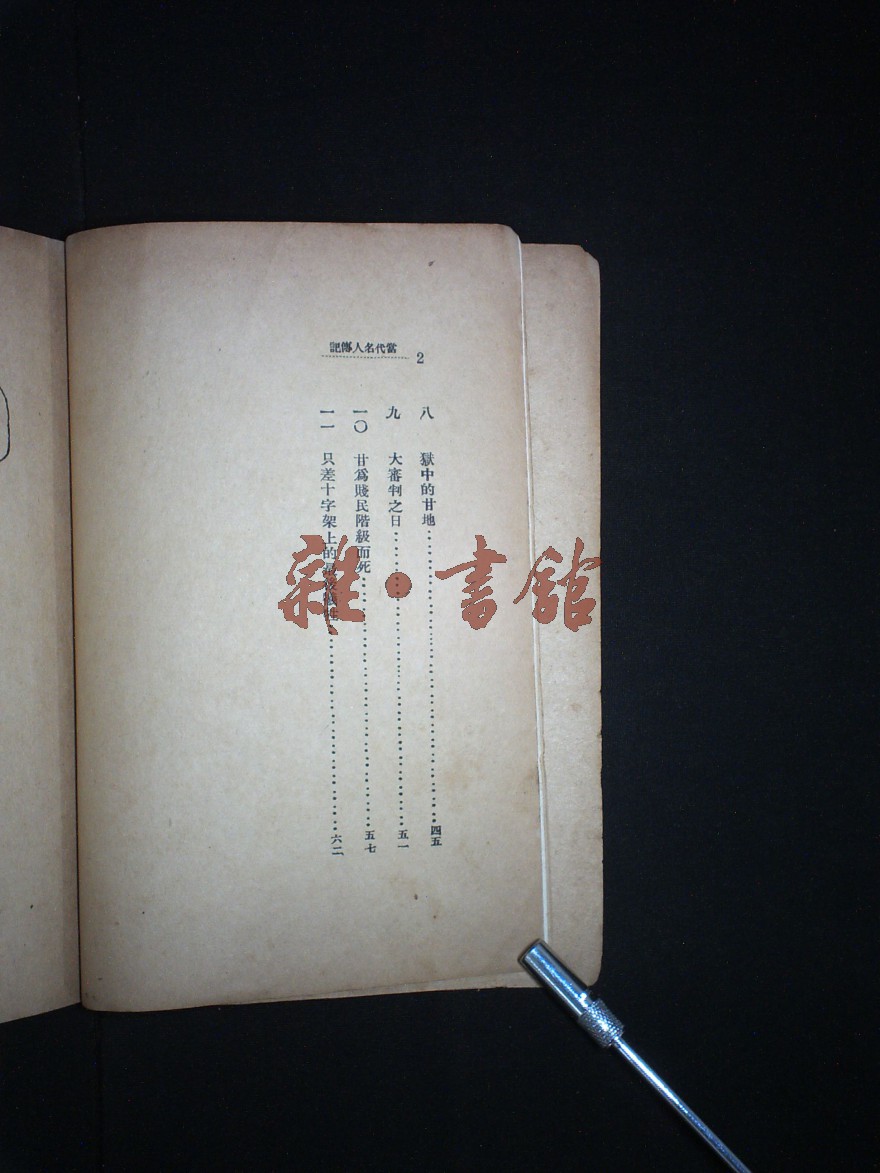 當代名人傳記
2
八 獄中的甘地……四五
九 大審判之日……五一
一〇 甘爲賤民階級而死……五七
一一 只差十字架上的……六二
雜·書館